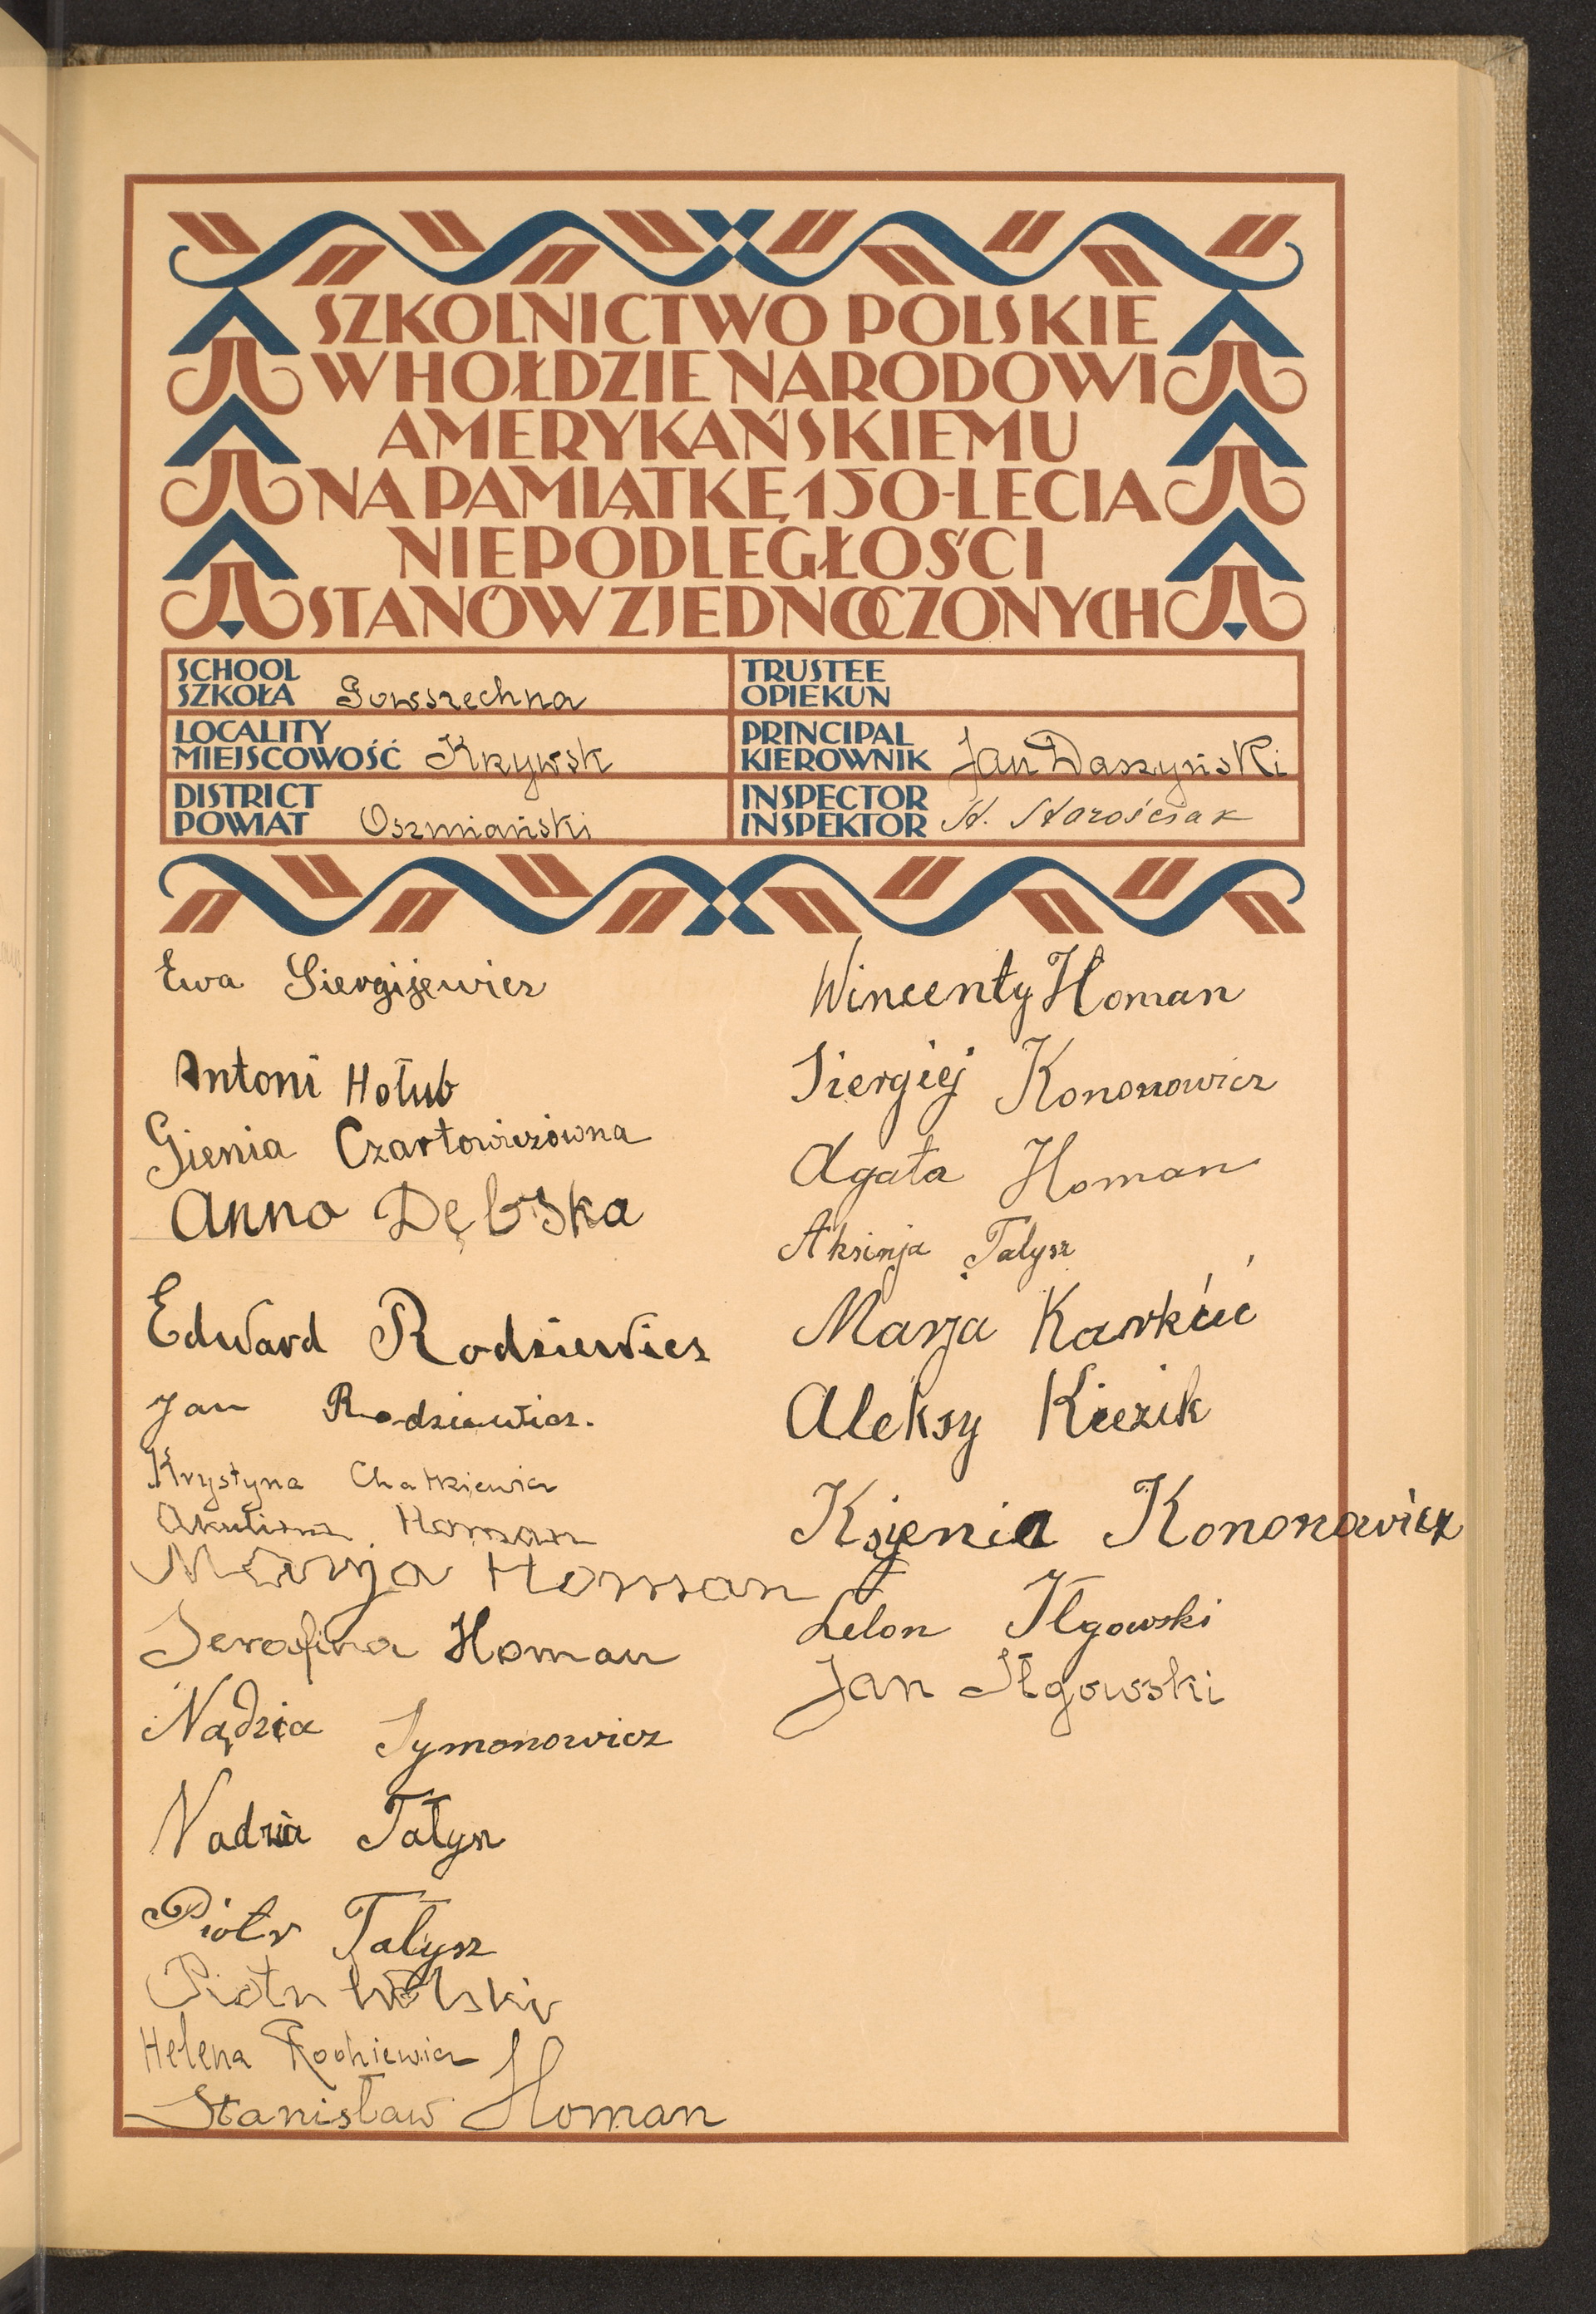 SZKOLNICTWO POLSKIE
W HOŁDZIE NARODOWI
AMERYKAŃSKIEMU
NA PAMIĄTKĘ 150-LECIA
NIEPODLEGŁOŚCI
STANÓW ZJEDNOCZONYCH
SCHOOL
SZKOŁA Powszechna
TRUSTEE
OPIEKUN
LOCALITY
MIEJSCOWOŚĆ Krzywsk
PRINCIPAL
KIEROWNIK Jan Daszyński
DISTRICT
POWIAT Oszmiański
INSPECTOR
INSPEKTOR St. Starościak
Ewa Siergijewicz
Antoni Hołub
Gienia Czartowiczówna
Anna Dębska
Edward Rodziewicz
Jan Rodziewicz.
Krystyna
Akulina Homan
Marja Homan
Serafina Homan
Nądzia Symonowicz
Nadzia Tałysz
Piotr Tałysz
Piotr
Helena
Stanisław Homan
Wincenty Homan
Siergiej Kononowicz
Agata Homan
Aksinja Talysz
Marja Karkuć
Aleksy Kiezik
Ksjenia Kononowicz
Lelon Iłgowski
Jan Iłgowski